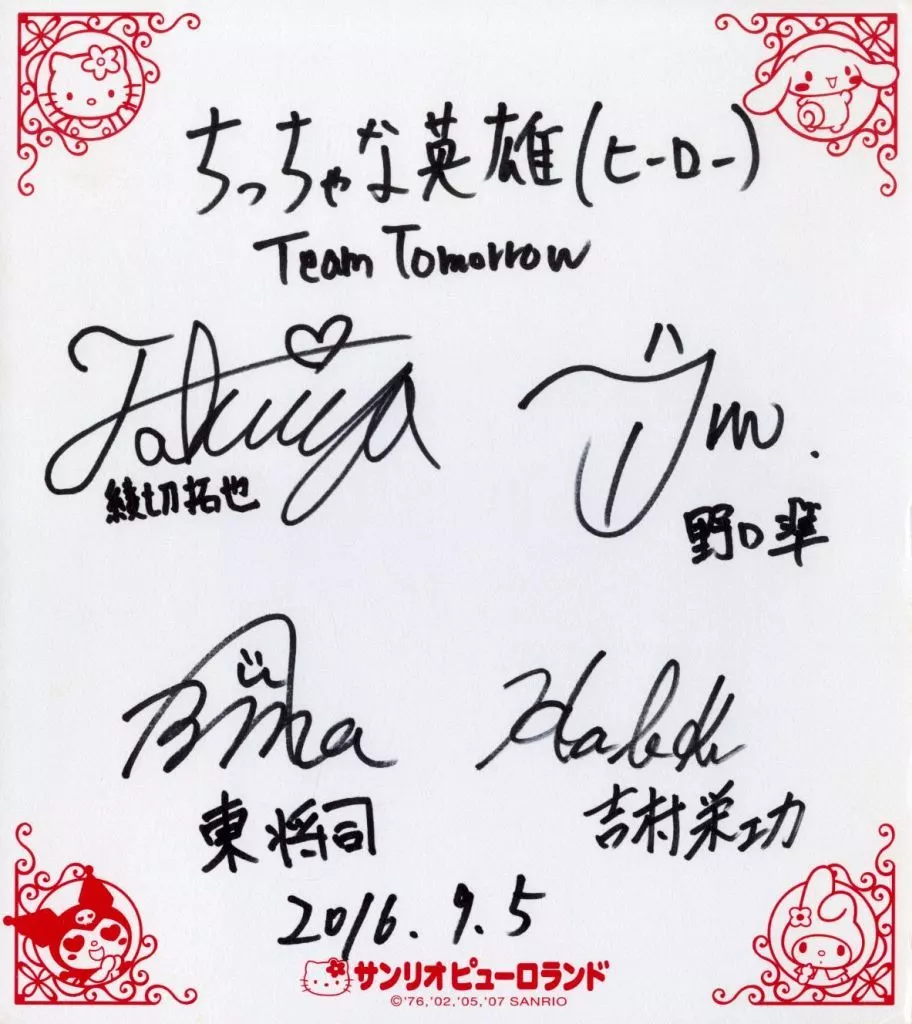 ちっちゃな英雄(ヒーロー)
Team Tomorrow
Takuya
綾切拓也
野口準
東将司
吉村栄功
2016.9.5
サンリオピューロランド
©'76,'02,'05,'07 SANRIO